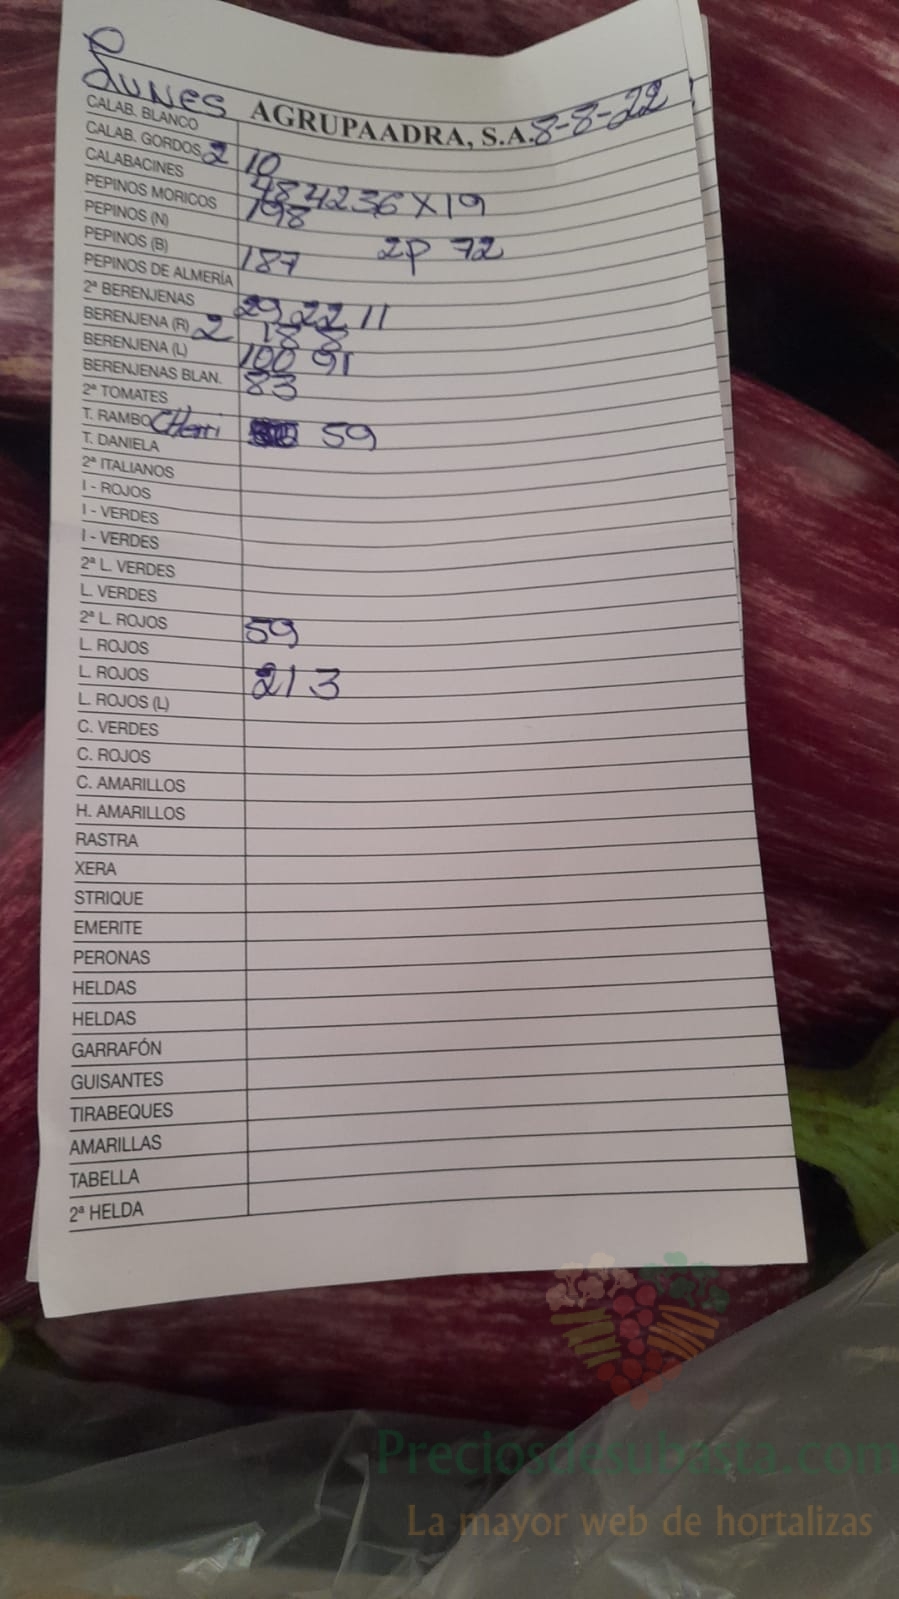 LUNES AGRUPAADRA, S.A. 8-8-22
CALAB. BLANCO
CALAB. GORDOS 2 10
CALABACINES 48 42 36 X 19
PEPINOS MORICOS 198
PEPINOS (N) 2P 72
PEPINOS (B) 187
PEPINOS DE ALMERÍA
2ª BERENJENAS 29 22 11
BERENJENA (R) 2 18 8
BERENJENA (L) 100 91
BERENJENAS BLAN. 83
2ª TOMATES
T. RAMBO CHerri 59
T. DANIELA
2ª ITALIANOS
I - ROJOS
I - VERDES
I - VERDES
2ª L. VERDES
L. VERDES
2ª L. ROJOS 59
L. ROJOS
L. ROJOS 213
L. ROJOS (L)
C. VERDES
C. ROJOS
C. AMARILLOS
H. AMARILLOS
RASTRA
XERA
STRIQUE
EMERITE
PERONAS
HELDAS
HELDAS
GARRAFÓN
GUISANTES
TIRABEQUES
AMARILLAS
TABELLA
2ª HELDA
Preciosdesubasta.com
La mayor web de hortalizas